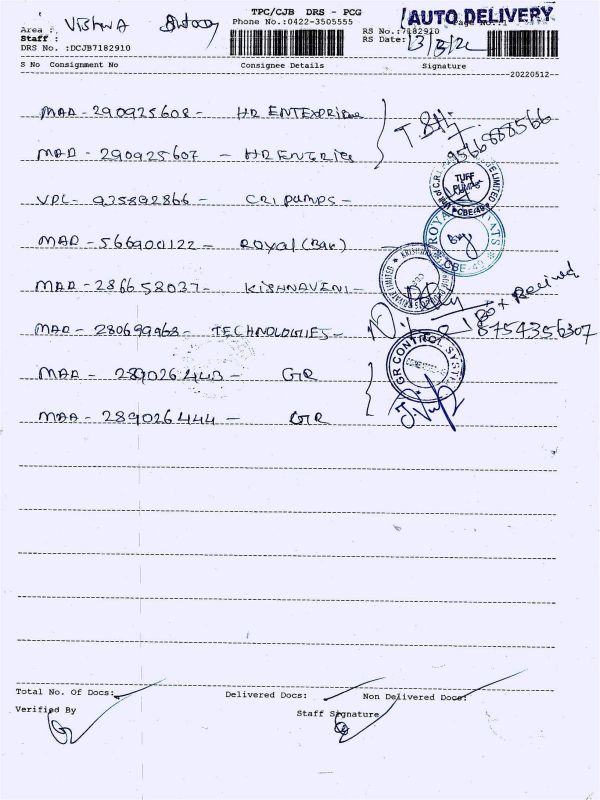 TPC/CJB DRS - PCG
AUTO DELIVERY
Area :
VISHWA
Phone No.:0422-3505555
Page No.:1
Staff :
RS No.:7182910
DRS No. :DCJB7182910
RS Date:
S No Consignment No Consignee Details Signature
20220512
MAA - 290925608 - HR ENTERPRISE
MAA - 290925607 - HR ENTRIE
T.
9566888566
VPL - 935892866 - CRI PUMPS -
TUFF PUMPS
CBE-49
MAA - 566900122 - ROYAL (Ban)
ROYAL
CBE-49
MAA - 286658037 - KISHNAVENI -
Box Recived
MAA - 280699968 - TECHNOLOGIES -
8754356307
MAA - 289026443 - GR
GR CONTROL SYSTE
MAA - 289026444 - GR
Total No. Of Docs: Delivered Docs: Non Delivered Docs:
Verified By Staff Signature